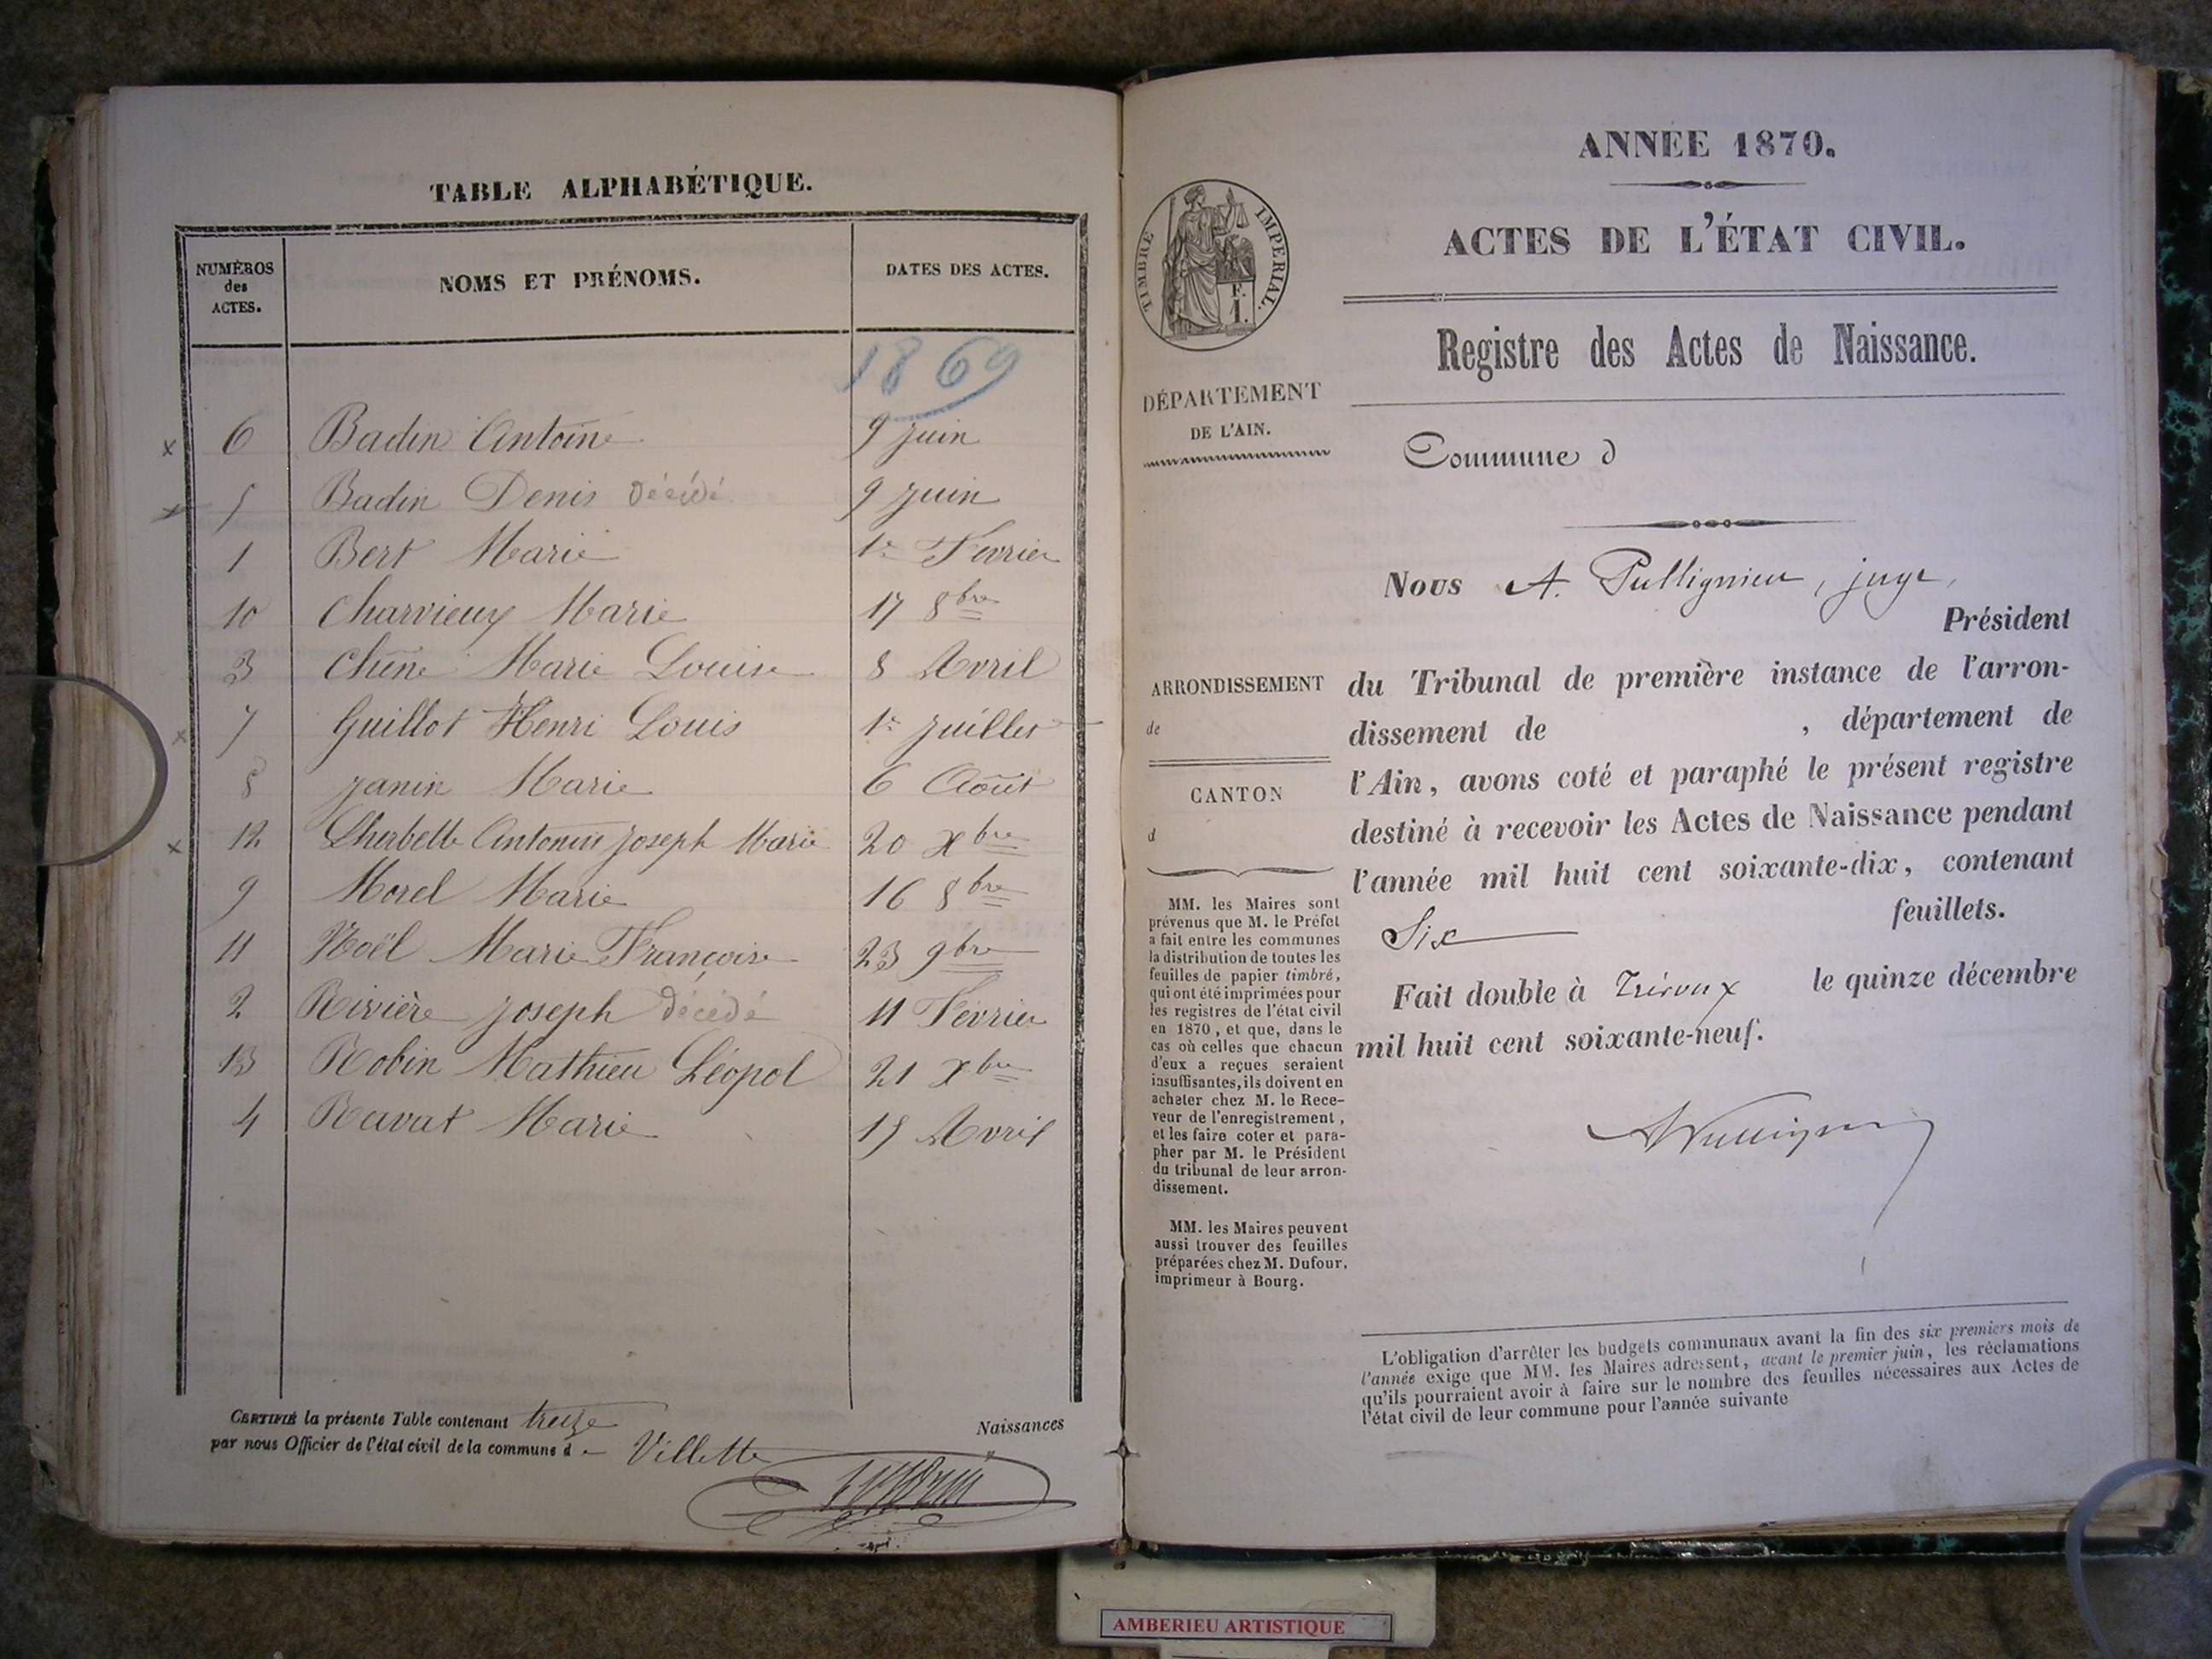 TABLE ALPHABÉTIQUE.
NUMÉROS des ACTES.
NOMS ET PRÉNOMS.
DATES DES ACTES.
1869
x 6 Badin Antoine 9 juin
x 5 Badin Denis Décédé 9 juin
1 Bert Marie 1er Fevrier
10 Charvieux Marie 17 8bre
3 Chêne Marie Louise 8 Avril
x 7 Guillot Henri Louis 1er juillet
8 janin Marie 6 Août
x 12 Lherbette Antonin joseph Marie 20 Xbre
9 Morel Marie 16 8bre
11 Noël Marie Françoise 23 9bre
2 Rivière joseph Décédé 11 Février
13 Robin Mathieu Léopol 21 Xbre
4 Ravat Marie 15 Avril
CERTIFIÉ la présente Table contenant treize Naissances
par nous Officier de l'état civil de la commune de Villette
ANNÉE 1870.
ACTES DE L'ÉTAT CIVIL.
TIMBRE IMPERIAL.
1 F.
Registre des Actes de Naissance.
DÉPARTEMENT
DE L'AIN.
Commune d
Nous A. Pullignieu, juge,
Président
ARRONDISSEMENT
de
CANTON
d
du Tribunal de première instance de l'arron-
dissement de , département de
l'Ain, avons coté et paraphé le présent registre
destiné à recevoir les Actes de Naissance pendant
l'année mil huit cent soixante-dix, contenant
Six feuillets.
Fait double à Trévoux le quinze décembre
mil huit cent soixante-neuf.
MM. les Maires sont
prévenus que M. le Préfet
a fait entre les communes
la distribution de toutes les
feuilles de papier timbré,
qui ont été imprimées pour
les registres de l'état civil
en 1870, et que, dans le
cas où celles que chacun
d'eux a reçues seraient
insuffisantes, ils doivent en
acheter chez M. le Rece-
veur de l'enregistrement,
et les faire coter et para-
pher par M. le Président
du tribunal de leur arron-
dissement.
MM. les Maires peuvent
aussi trouver des feuilles
préparées chez M. Dufour,
imprimeur à Bourg.
L'obligation d'arrêter les budgets communaux avant la fin des six premiers mois de
l'année exige que MM. les Maires adressent, avant le premier juin, les réclamations
qu'ils pourraient avoir à faire sur le nombre des feuilles nécessaires aux Actes de
l'état civil de leur commune pour l'année suivante
AMBERIEU ARTISTIQUE